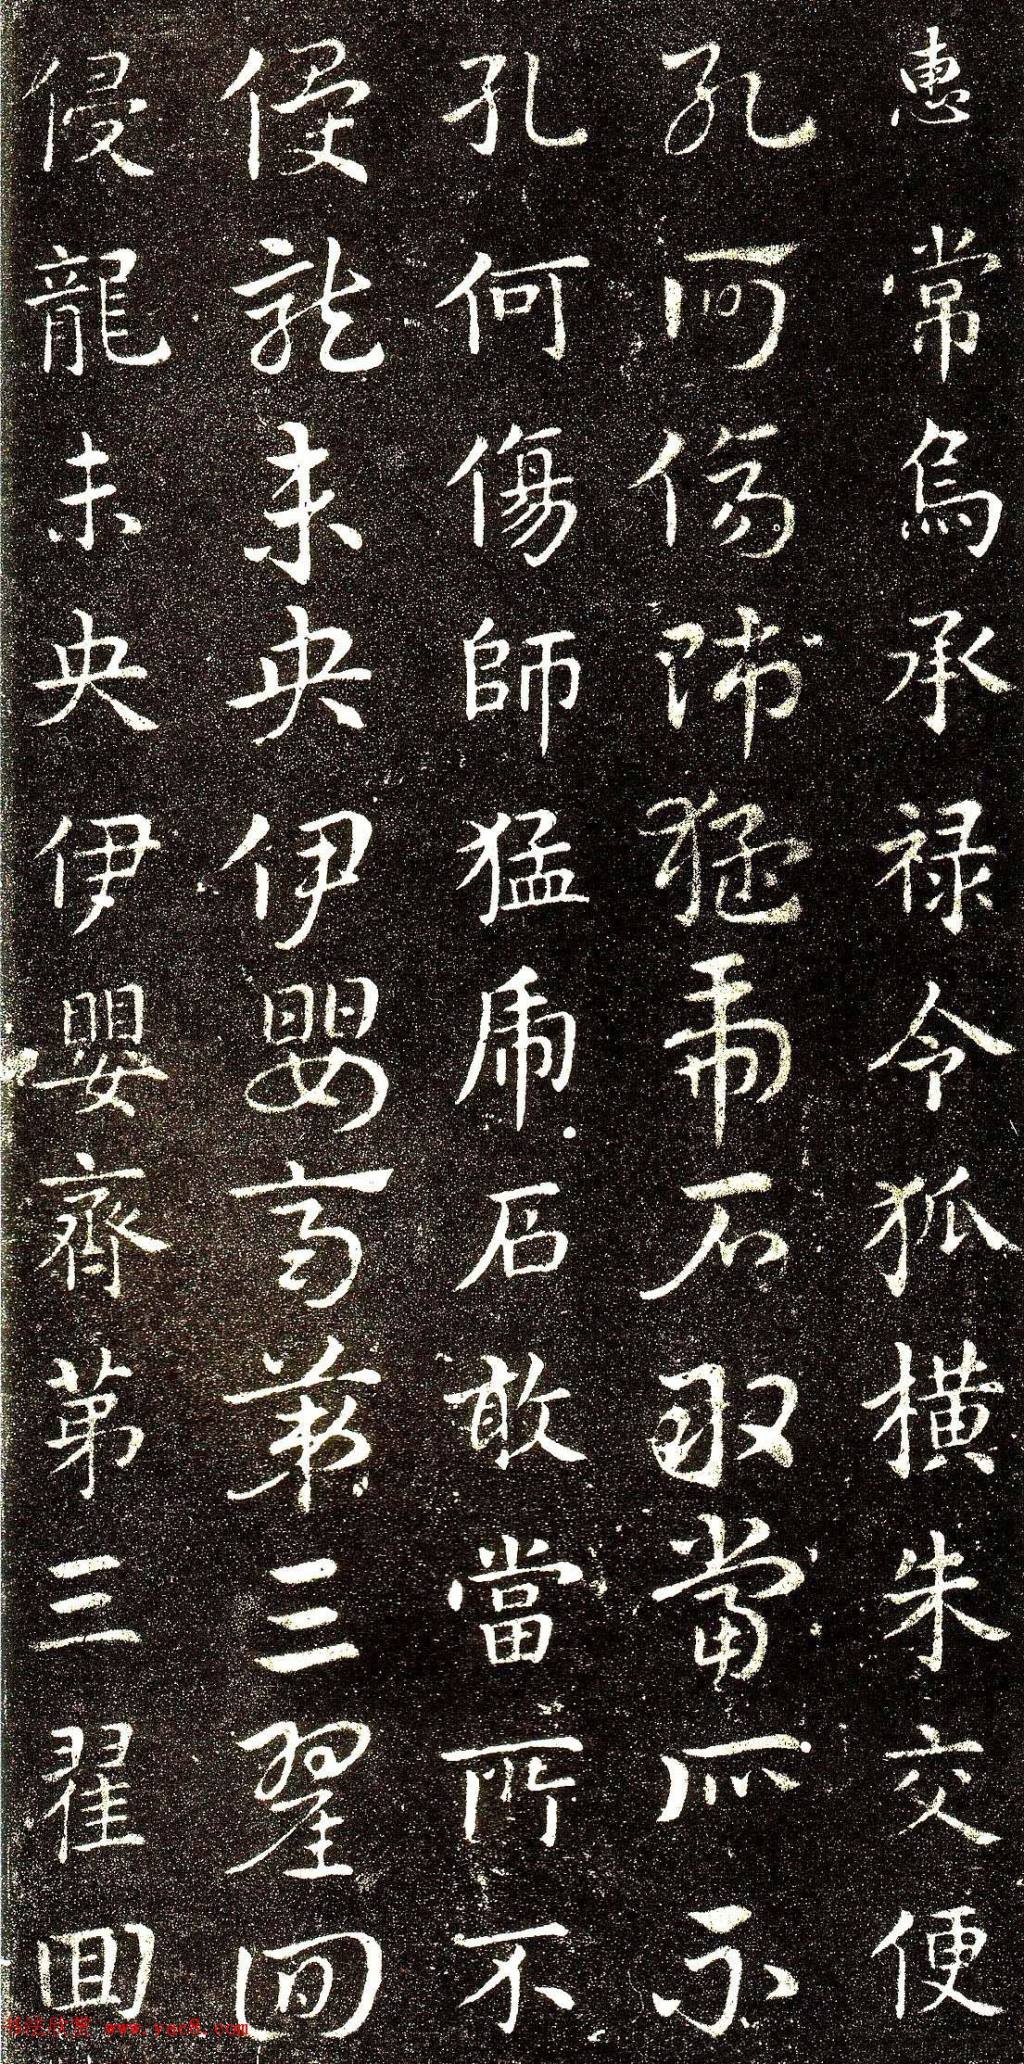 惠常烏承祿令狐橫朱交便
孔何傷師猛虎石敢當所不
孔何傷師猛虎石敢當所不
侵龍未央伊嬰齊第三翟回
侵龍未央伊嬰齊第三翟回
www.yac8.com